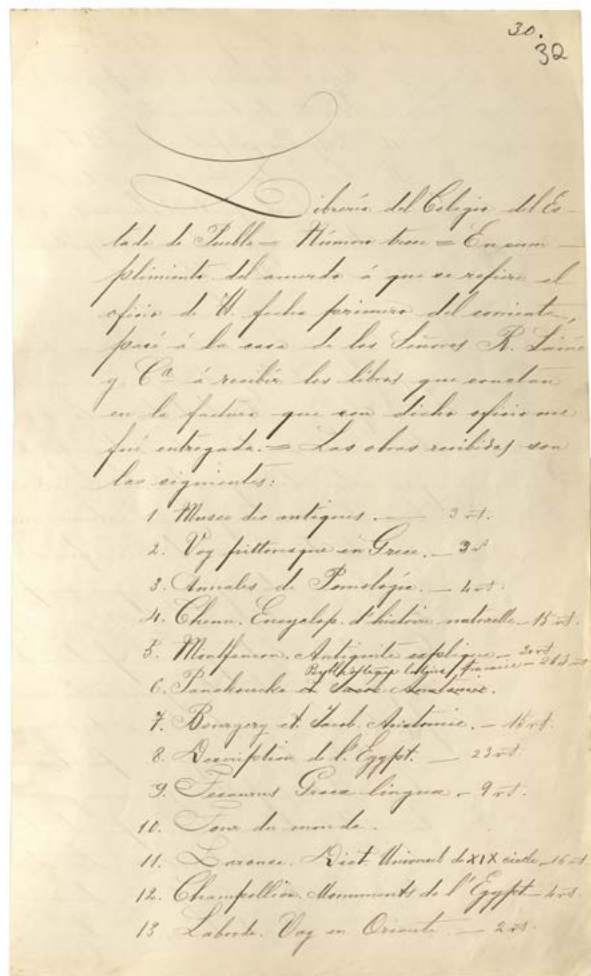 30.
32
Librería del Colegio del Es-
tado de Puebla = Número trece = En cum-
plimiento del acuerdo á que se refiere el
oficio de U. fecha primero del corriente,
pasé á la casa de los Señores R. Lainé
y Cª á recibir los libros que constan
en la factura que con dicho oficio me
fué entregada. = Las obras recibidas son
las siguientes:
1 Museo des antiques. — 3 vt.
2. Voy pittoresque en Grece. — 3 vt
3. Annales de Pomologie. — 4 vt.
4. Chenu. Encyclop. d'histoire naturelle — 15 vt.
5. Montfaucon. Antiquite explique — 20 vt
latine, francaise — 213 vt
6. Panckoucke
7. Bourgery et Jacob. Anatomie. — 16 vt.
8. Description de l'Egypt. — 23 vt.
9. Tesaurus Graca lingua — 9 vt.
10. Tour du monde.
11. Larouse. Dict. Universel de XIX siecle — 16 vt.
12. Champellion. Monuments de l'Egypt — 4 vt.
13 Laborde. Voy en Oriente. — 2 vt.